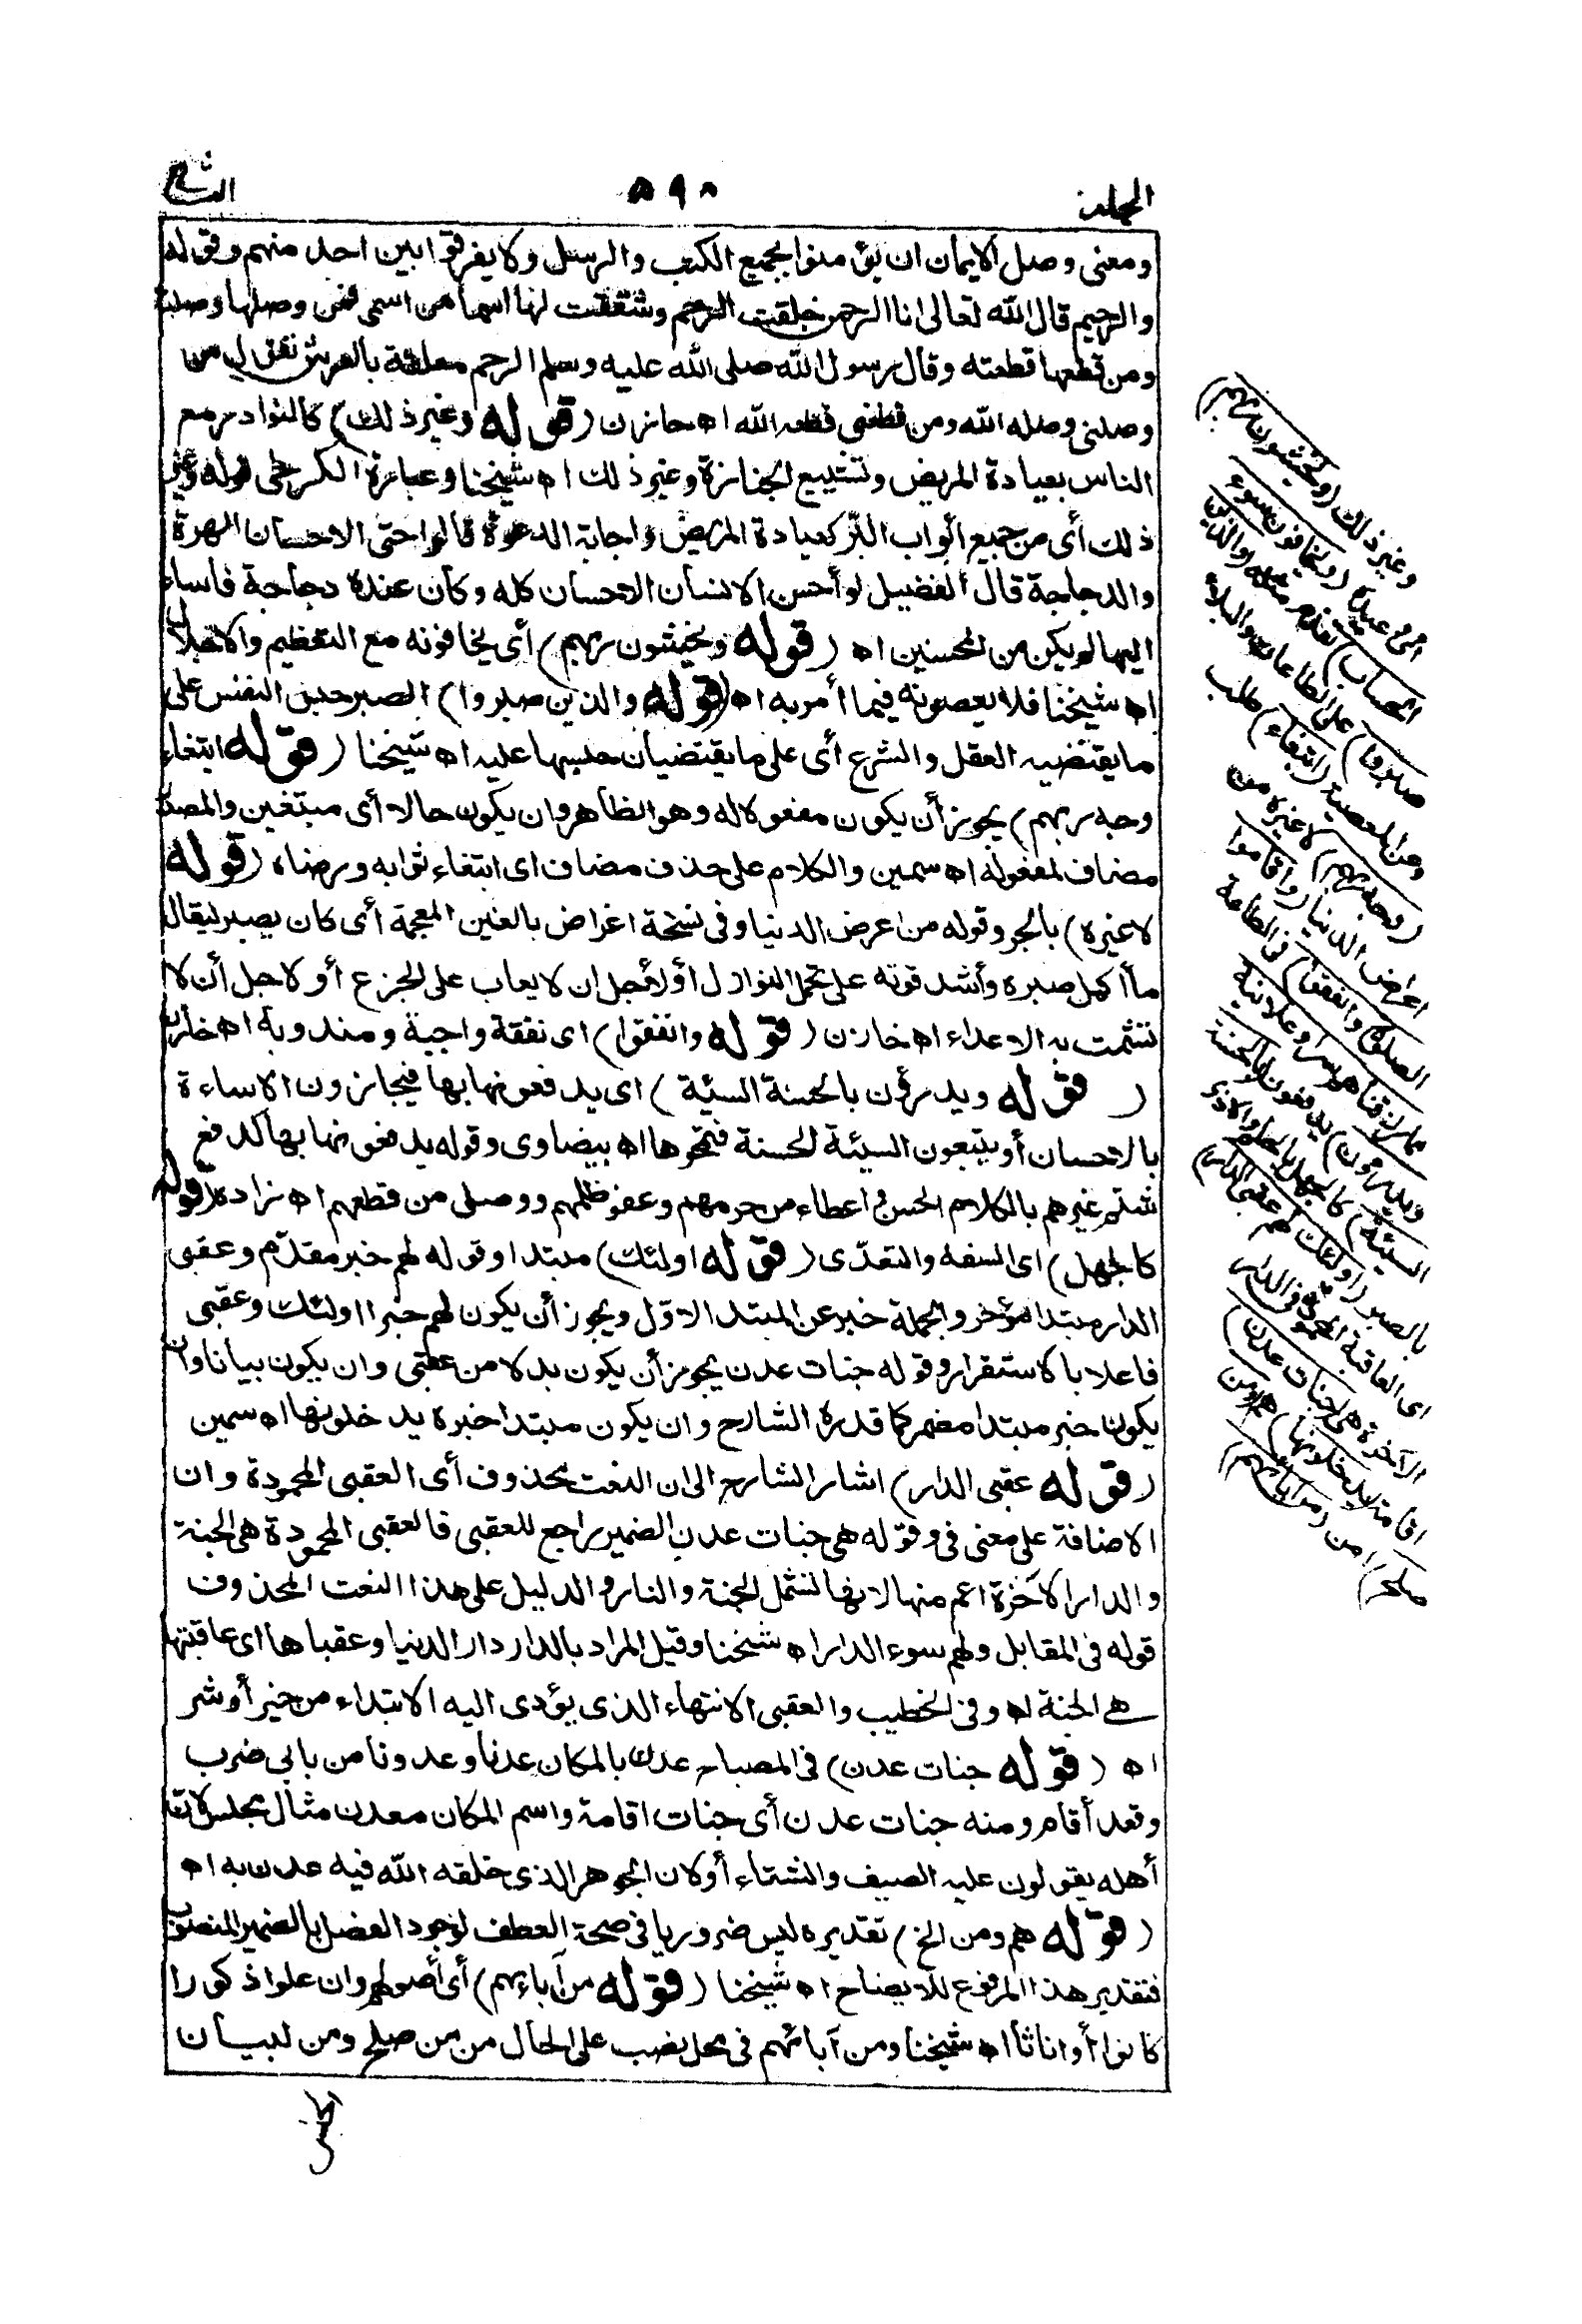 المجلد
٥٩٨
ومعنى وصل الايمان ان يؤمنوا بجميع الكتب والرسل ولا يفرقوا بين احد منهم وقوله
والرحيم قال الله تعالى انا الرحمن خلقت الرحم وشققت لها اسما من اسمى فمن وصلها وصلته
ومن قطعها قطعته وقال رسول الله صلى الله عليه وسلم الرحم معلقة بالعرش تقول من
وصلنى وصله الله ومن قطعنى قطعه الله اه خازن (قوله وغير ذلك) كالتوادد مع
الناس بعيادة المريض وتشييع الجنازة وغير ذلك اه شيخنا وعبارة الكرخى قوله وغير
ذلك أى من جميع أبواب البرّ كعيادة المريض واجابة الدعوة قالوا حتى الاحسان الهرة
والدجاجة قال الفضيل لو أحسن الانسان الاحسان كله وكان عنده دجاجة فاساء
اليها لم يكن من المحسنين اه (قوله ويخشون ربهم) أى يخافونه مع التعظيم والاجلال
اه شيخنا فلا يعصونه فيما أمر به اه (قوله والذين صبروا) الصبر حبس النفس على
ما يقتضيه العقل والشرع أى على ما يقتضيان حبسها عليه اه شيخنا (قوله ابتغاء
وجه ربهم) يجوز أن يكون مفعولا له وهو الظاهر وان يكون حالا أى مبتغين والمصدر
مضاف لمفعوله اه سمين والكلام على حذف مضاف اى ابتغاء ثوابه ورضاه (قوله
لا غيره) بالجر وقوله من اعرض الدنيا وفى نسخة اغراض بالغين المعجمة أى كان يصبر ليقال
ما أكمل صبره وأشد قوته على تحمل النوازل أو لأجل ان لا يعاب على الجزع أو لاجل أن لا
تشمت به الاعداء اه خازن (قوله وانفقوا) اى نفقة واجبة ومندوبة اه خازن
(قوله ويدرؤن بالحسنة السيئة) اى يدفعونها بها فيجازون الاساءة
بالاحسان أو يتبعون السيئة الحسنة فتمحوها اه بيضاوى وقوله يدفعونها بها كدفع
شتم غيرهم بالكلام الحسن واعطاء من حرمهم وعفو ظلمهم ووصل من قطعهم اه زاده (قوله
كالجهل) اى السفه والتعدّى (قوله اولئك) مبتدا وقوله لهم خبر مقدّم وعقبى
الدار مبتدا مؤخر والجملة خبر عن المبتدا الاوّل ويجوز أن يكون لهم خبر اولئك وعقبى
فاعلا بالاستقرار وقوله جنات عدن يجوز أن يكون بدلا من عقبى وان يكون بيانا وان
يكون خبر مبتدا مضمر كما قدره الشارح وان يكون مبتدا خبره يدخلونها اه سمين
(قوله عقبى الدار) اشار الشارح الى ان النعت محذوف أى العقبى المحمودة وان
الاضافة على معنى فى وقوله هى جنات عدن الضمير راجع للعقبى فالعقبى المحمودة هى الجنة
والدار الآخرة اعم منها لانها تشمل الجنة والنار والدليل على هذا النعت المحذوف
قوله فى المقابل ولهم سوء الدار اه شيخنا وقيل المراد بالدار دار الدنيا وعقباها اى عاقبتها
هى الجنة اه وفى الخطيب والعقبى الانتهاء الذى يؤدى اليه الابتداء من خير أو شر
اه (قوله جنات عدن) فى المصباح عدن بالمكان عدنا وعدونا من بابى ضرب
وقعد أقام ومنه جنات عدن أى جنات اقامة واسم المكان معدن مثال مجلس لان
أهله يقولون عليه الصيف والشتاء أو لان الجوهر الذى خلقه الله فيه عدن به اه
(قوله هم ومن الخ) تقديره ليس ضروريا فى صحة العطف لوجود الفصل بالضمير المنصوب
فتقدير هذا المرفوع للايضاح اه شيخنا (قوله من آباءهم) أى أصولهم وان علوا ذكورا
كانوا أو اناثا اه شيخنا ومن آبائهم فى محل نصب على الحال من من صلح ومن لبيان
وغير ذلك (ويخشون ربهم)
اى وعيده (ويخافون سوء
الحساب) تقدم مثله (والذين
صبروا) على الطاعات والبلاء
وعن المعصية (ابتغاء) طلب
(وجه ربهم) لا غيره من
اعراض الدنيا (واقاموا
الصلوة وانفقوا) فى الطاعة
مما رزقناهم سرا وعلانية
ويدرءون) يدفعون (بالحسنة
السيئة) كالجهل بالحلم والاذى
بالصبر (اولئك لهم عقبى الدار)
اى العاقبة المحمودة فى الدار
الآخرة هى (جنات عدن)
اقامة (يدخلونها) هم (ومن
صلح) امن (من آبائهم)